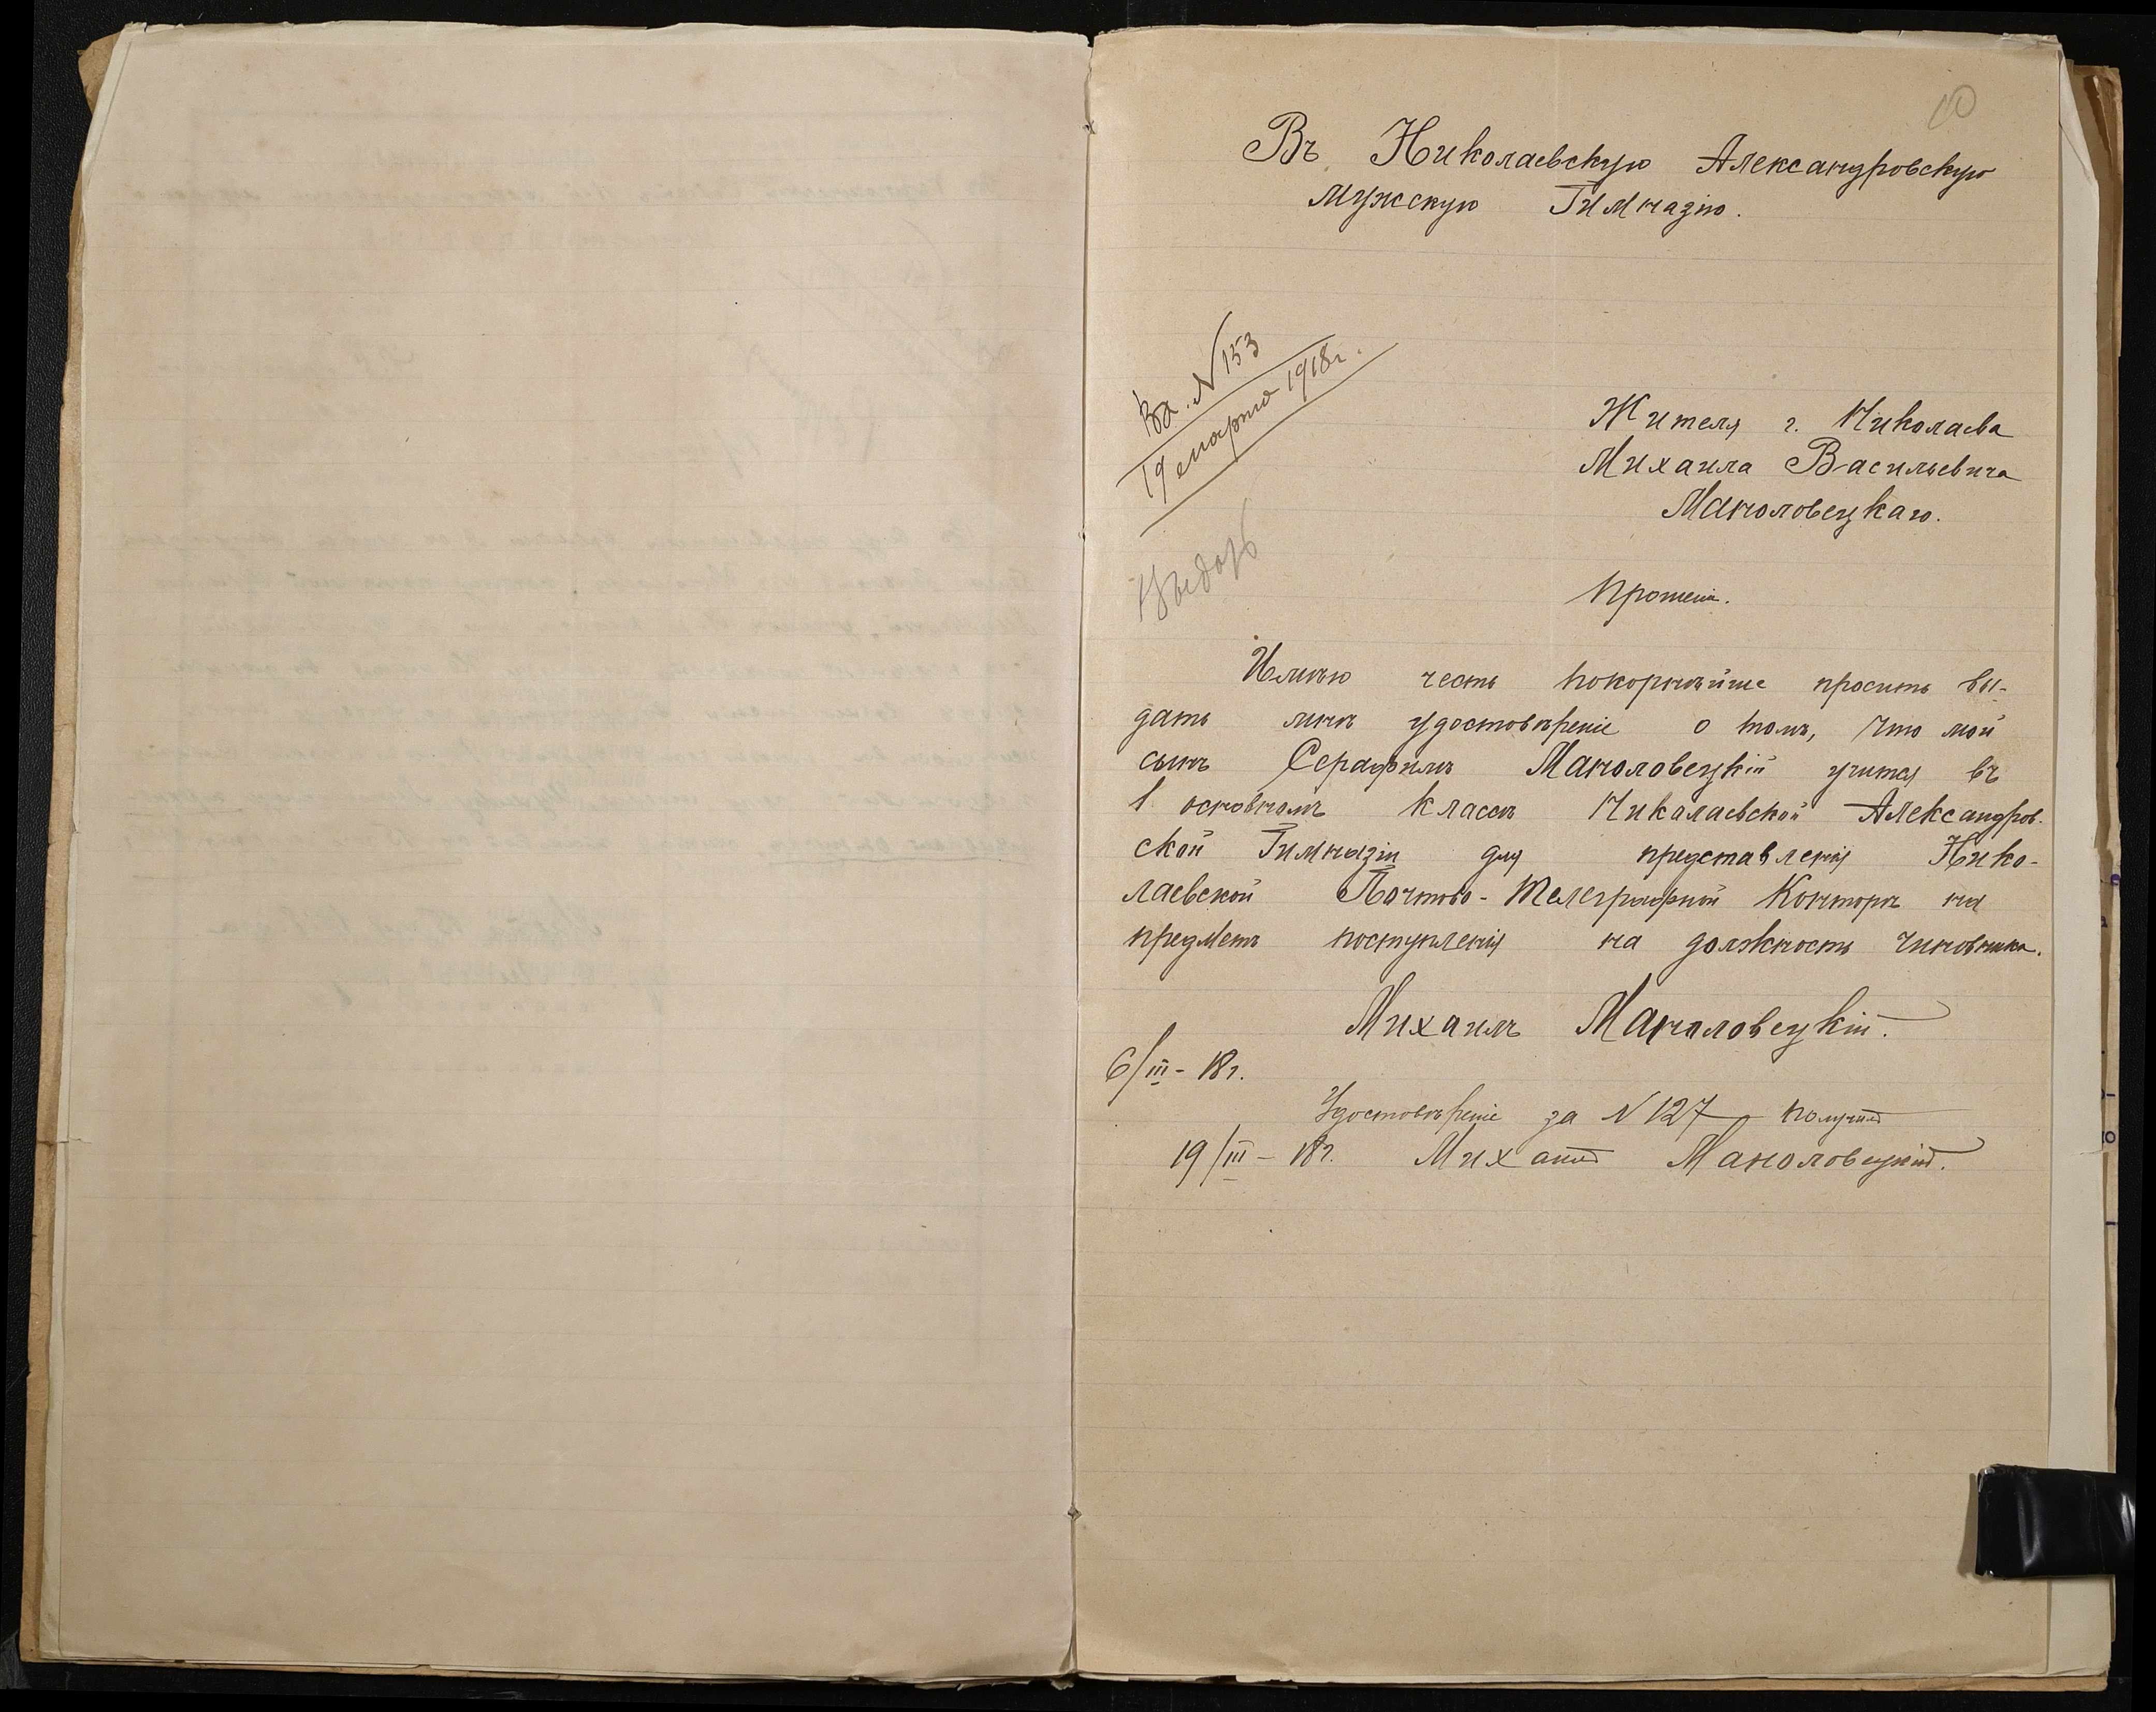 10
Въ Николаевскую Александровскую
мужскую Гимназію.
Вх. N 153
19 марта 1918 г.
Жителя г. Николаева
Михаила Васильевича
Манголовецкаго.
Прошеніе.
Имѣю честь покорнѣйше просить вы-
дать мнѣ удостовѣреніе о томъ, что мой
сынъ Серафимъ Маноловецкій учится въ
1 основномъ классѣ Николаевской Александров-
ской Гимназіи для представленія Нико-
лаевской Почтово-Телеграфной Конторѣ на
предметъ поступленія на должность чиновника.
Михаилъ Маноловецкій.
6/III - 18 г.
Удостовѣреніе за N 127 получилъ
19/III - 18 г. Михаилъ Маноловецкій.